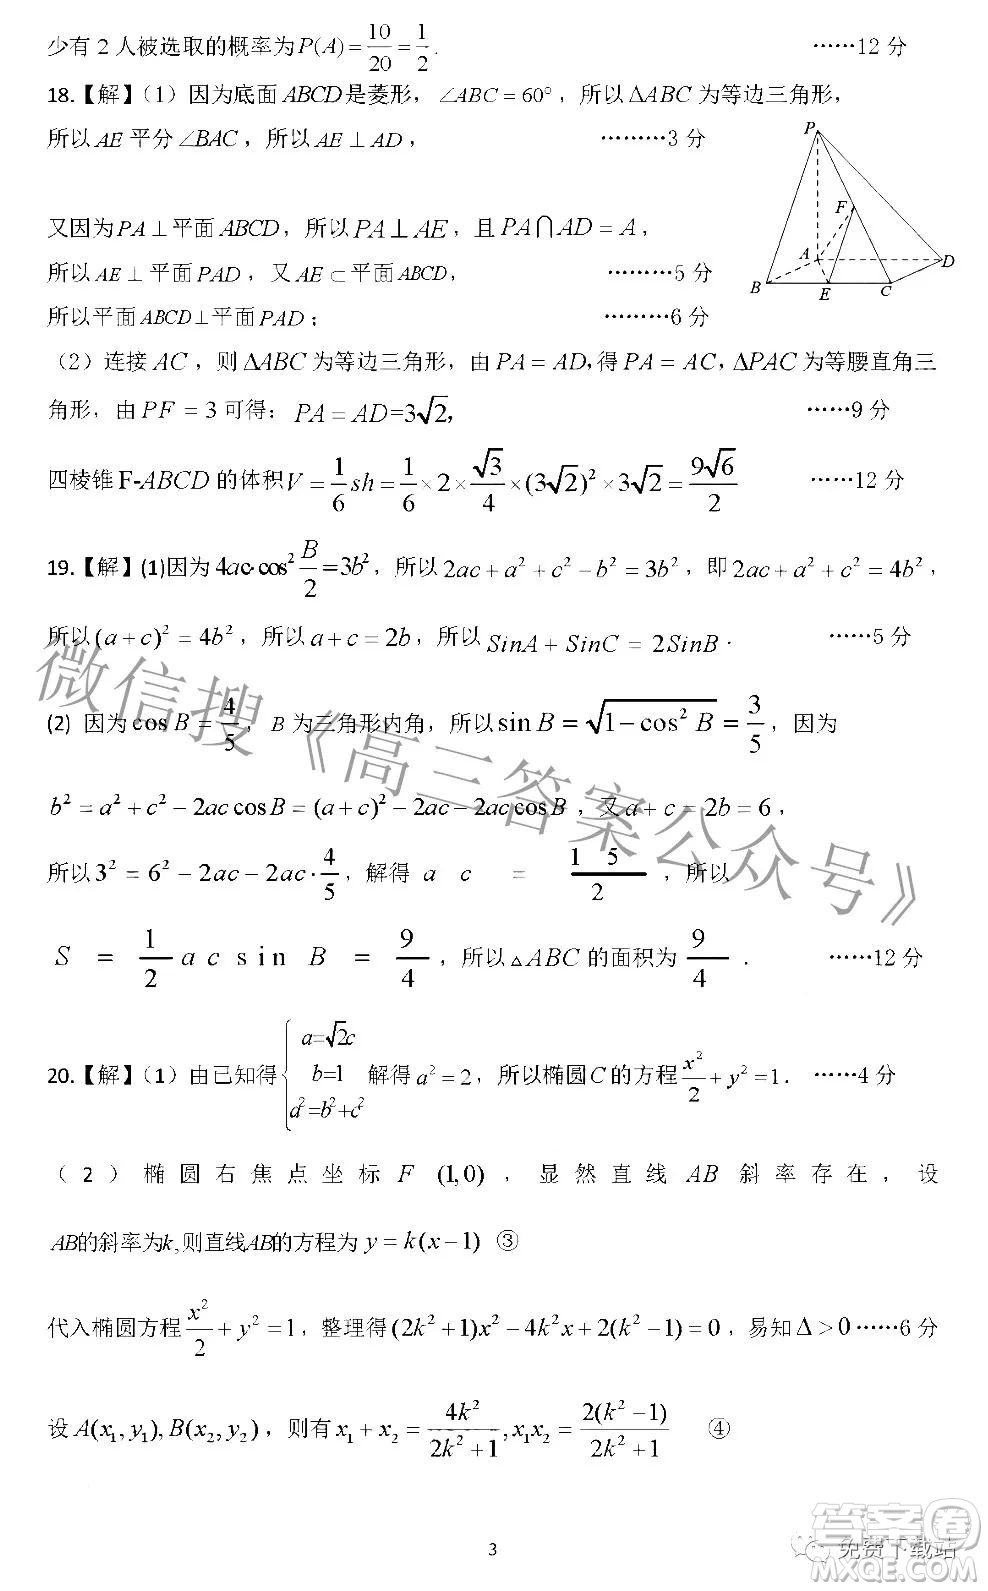 少有 2 人被选取的概率为 P(A) = 10/20 = 1/2 . ……12 分
18.【解】（1）因为底面 ABCD 是菱形，∠ABC = 60°，所以 ΔABC 为等边三角形，
所以 AE 平分 ∠BAC，所以 AE ⊥ AD， ………3 分
又因为 PA ⊥ 平面 ABCD，所以 PA ⊥ AE，且 PA ⋂ AD = A，
所以 AE ⊥ 平面 PAD，又 AE ⊂ 平面 ABCD， ………5 分
所以平面 ABCD ⊥ 平面 PAD； ………6 分
P
F
A
D
B
E
C
（2）连接 AC，则 ΔABC 为等边三角形，由 PA = AD，得 PA = AC，ΔPAC 为等腰直角三
角形，由 PF = 3 可得：PA = AD=3√2， ……9 分
四棱锥 F-ABCD 的体积 V = 1/6 sh = 1/6 × 2 × √3/4 × (3√2)² × 3√2 = 9√6/2 ……12 分
19.【解】(1)因为 4ac·cos² B/2 =3b²，所以 2ac + a² + c² − b² = 3b²，即 2ac + a² + c² = 4b²，
所以 (a + c)² = 4b²，所以 a + c = 2b，所以 SinA + SinC = 2SinB . ……5 分
(2) 因为 cos B = 4/5，B 为三角形内角，所以 sin B = √(1 − cos² B) = 3/5，因为
b² = a² + c² − 2ac cos B = (a + c)² − 2ac − 2ac cos B，又 a + c = 2b = 6，
所以 3² = 6² − 2ac − 2ac · 4/5，解得 a c = 1 5/2，所以
S = 1/2 a c sin B = 9/4，所以 △ABC 的面积为 9/4 . ……12 分
20.【解】（1）由已知得 { a=√2c b=1 a²=b²+c² 解得 a² = 2，所以椭圆 C 的方程 x²/2 + y² = 1. ……4 分
（2）椭圆右焦点坐标 F (1,0)，显然直线 AB 斜率存在，设
AB的斜率为k,则直线AB的方程为 y = k(x − 1) ③
代入椭圆方程 x²/2 + y² = 1，整理得 (2k² + 1)x² − 4k²x + 2(k² − 1) = 0，易知 Δ > 0 ……6 分
设 A(x₁, y₁), B(x₂, y₂)，则有 x₁ + x₂ = 4k²/(2k² + 1), x₁x₂ = 2(k² − 1)/(2k² + 1) ④
3
微信搜《高三答案公众号》
答案圈
MXQE.COM
免费下载站